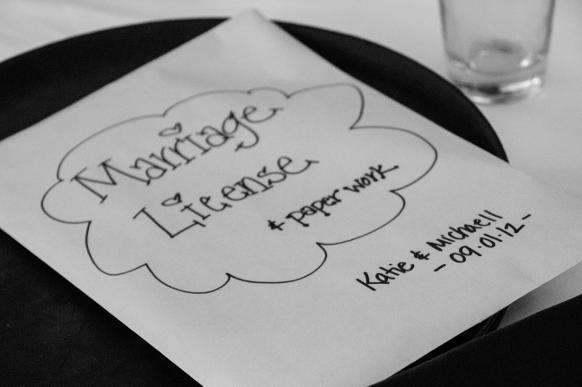 Marriage
License
& paper work
Katie & Michaell
- 09.01.12 -